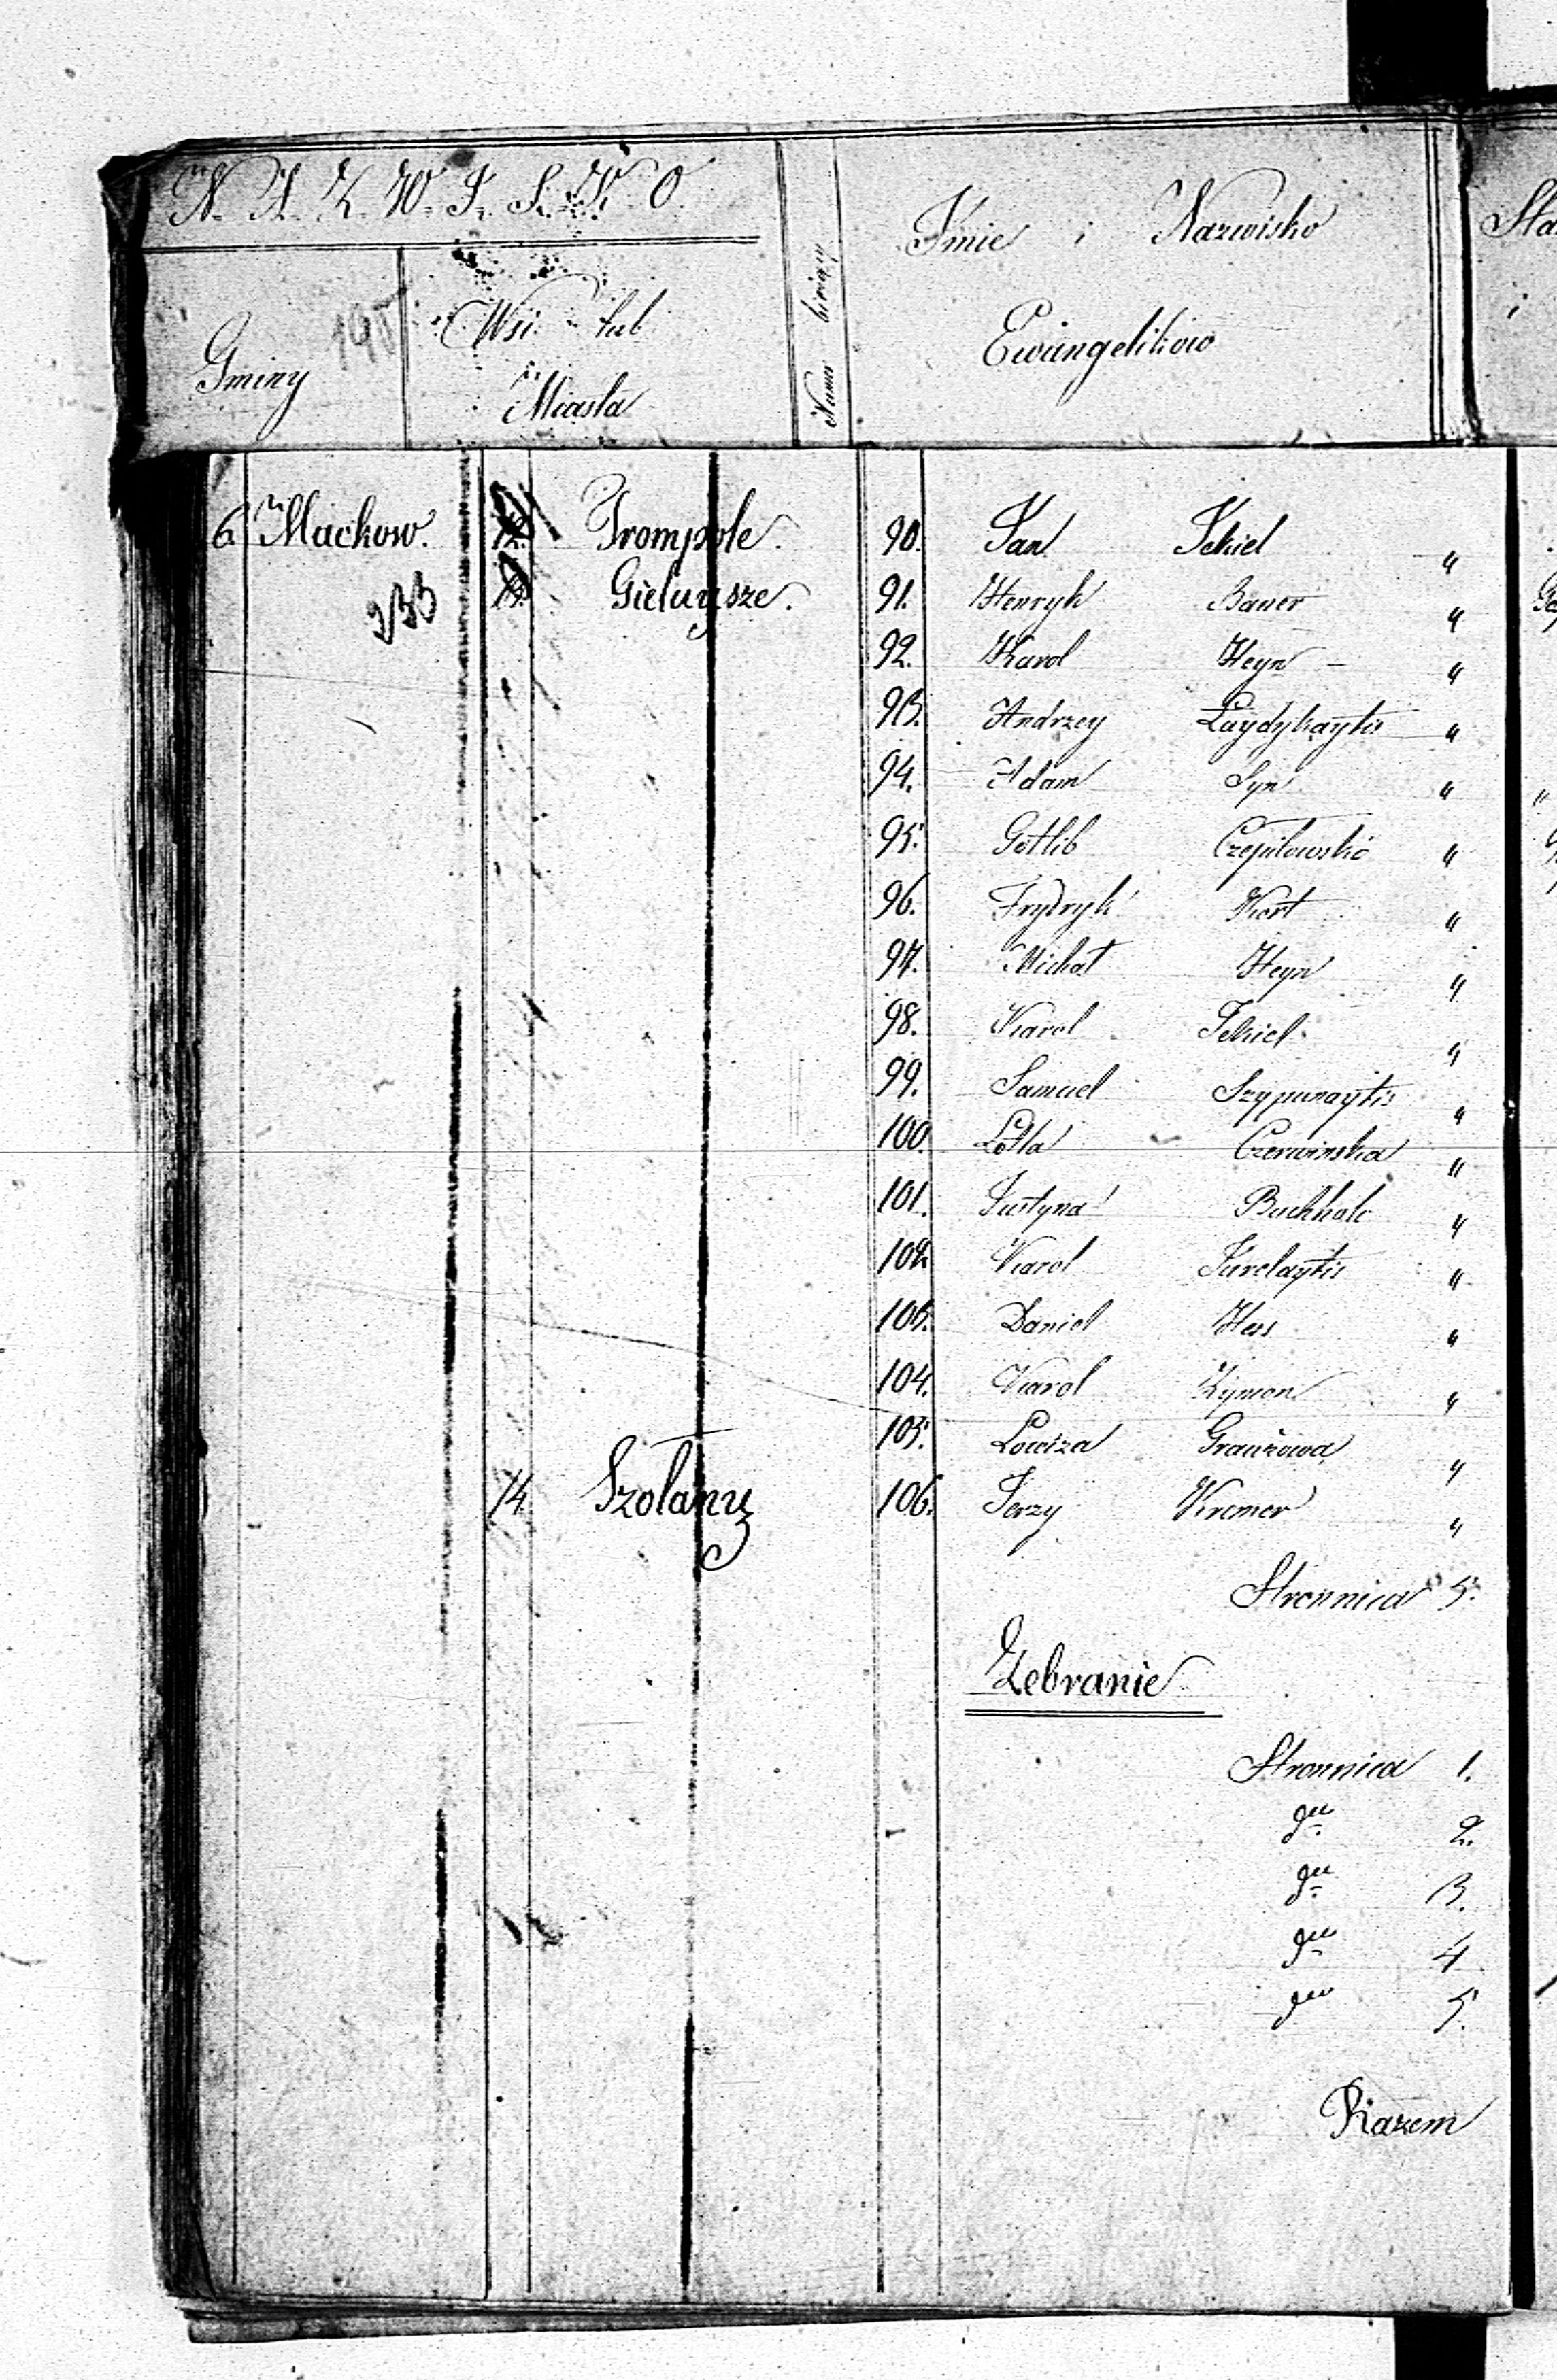 N. A. Z. W. I. S. K. O.
Gminy
Wsi lub
Miasta
Numer bieżący
Imie i Nazwisko
Ewangelikow
6. Mackow. 12. Trompole. 90. Jan Jekiel "
233 13. Gieluysze. 91. Henryk Bauer "
92. Karol Heyn "
93. Andrzey Laydykaytis "
94. Adam Syn "
95. Gotlib Czepilowski "
96. Frydryk Kort "
97. Michał Heyn "
98. Karol Jekiel "
99. Samuel Szypunaytis "
100. Lotta Czerwinska "
101. Justyna Buchholc "
102. Karol Jurelaytis "
103. Daniel Hess "
104. Karol Zymon "
105. Lowiza Grauzowa "
14. Szolany 106. Jerzy Kremer "
Stronnica 5.
Zebranie
Stronnica 1.
2.
3.
4
5.
Razem